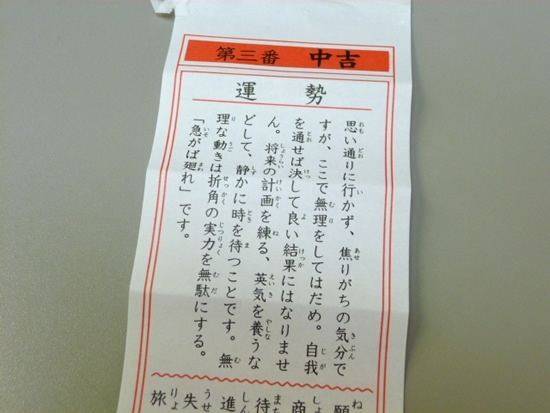 第三番 中吉
運勢
思い通りに行かず、焦りがちの気分で
すが、ここで無理をしてはだめ。自我
を通せば決して良い結果にはなりませ
ん。将来の計画を練る、英気を養うな
どして、静かに時を待つことです。無
理な動きは折角の実力を無駄にする。
「急がば廻れ」です。
願
商
待
進
失
旅